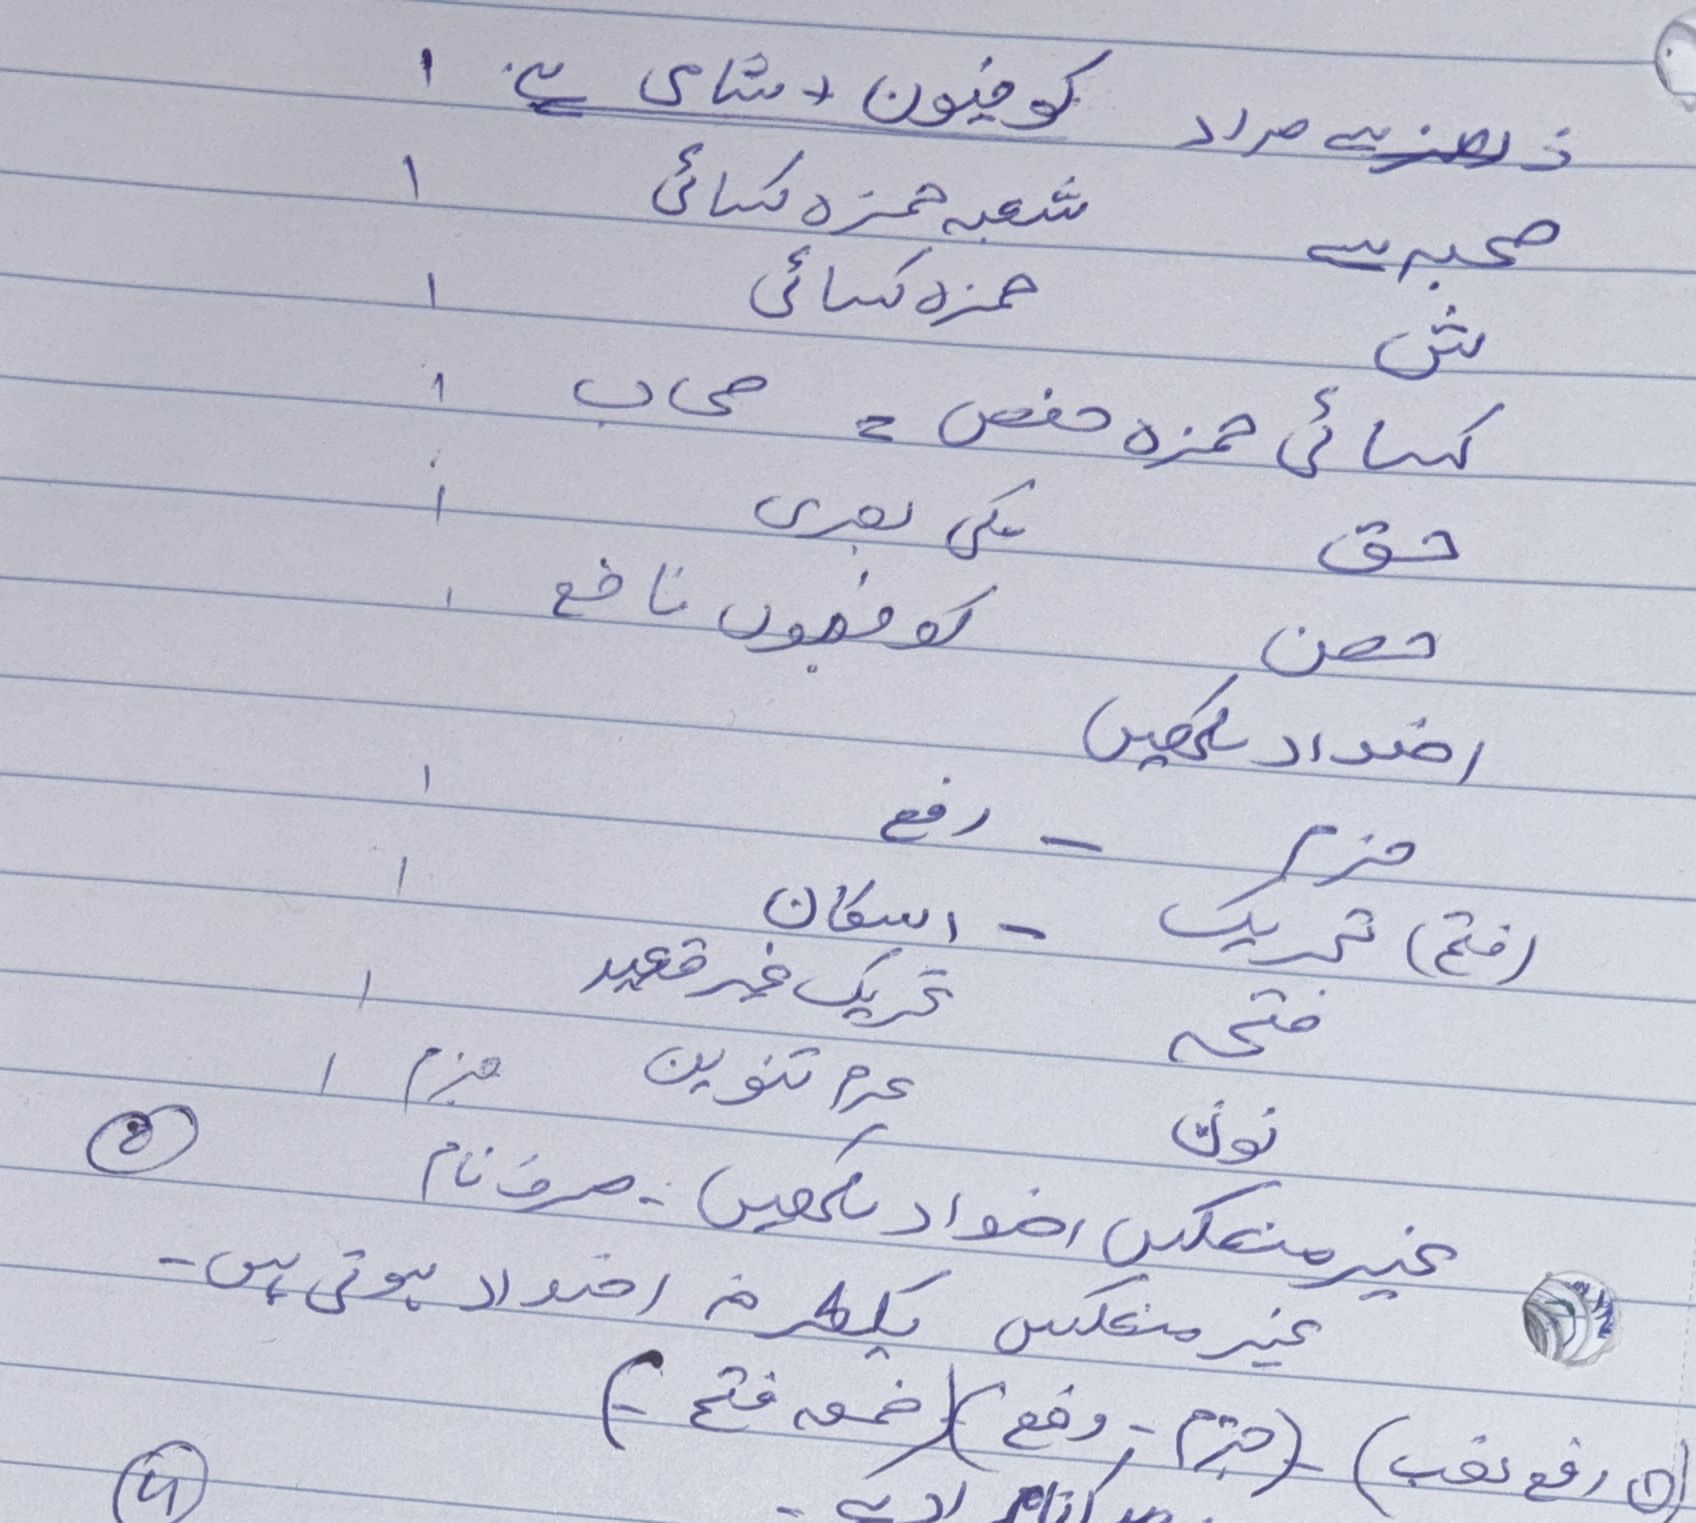 ذ سے مراد کوفیون + شامی ہے۔ ۱
صحبہ سے شعبہ حمزہ کسائی ۱
ش حمزہ کسائی ۱
کسائی حمزہ حفص = صحاب ۱
حق مکی بصری ۱
حصن کوفیون نافع ۱
اضداد لکھیں
جزم – رفع ۱
(فتح) تحریک – اسکان ۱
فتحہ تحریک غیر قعید ۱
نون عدم تنوین جزم ۱
غیر منعکس اضداد لکھیں - صرف نام ۵
غیر منعکس یکطرفہ اضداد ہوتی ہیں۔
(۱) رفع نصب) - (جزم - رفع) (ضمہ فتح -)